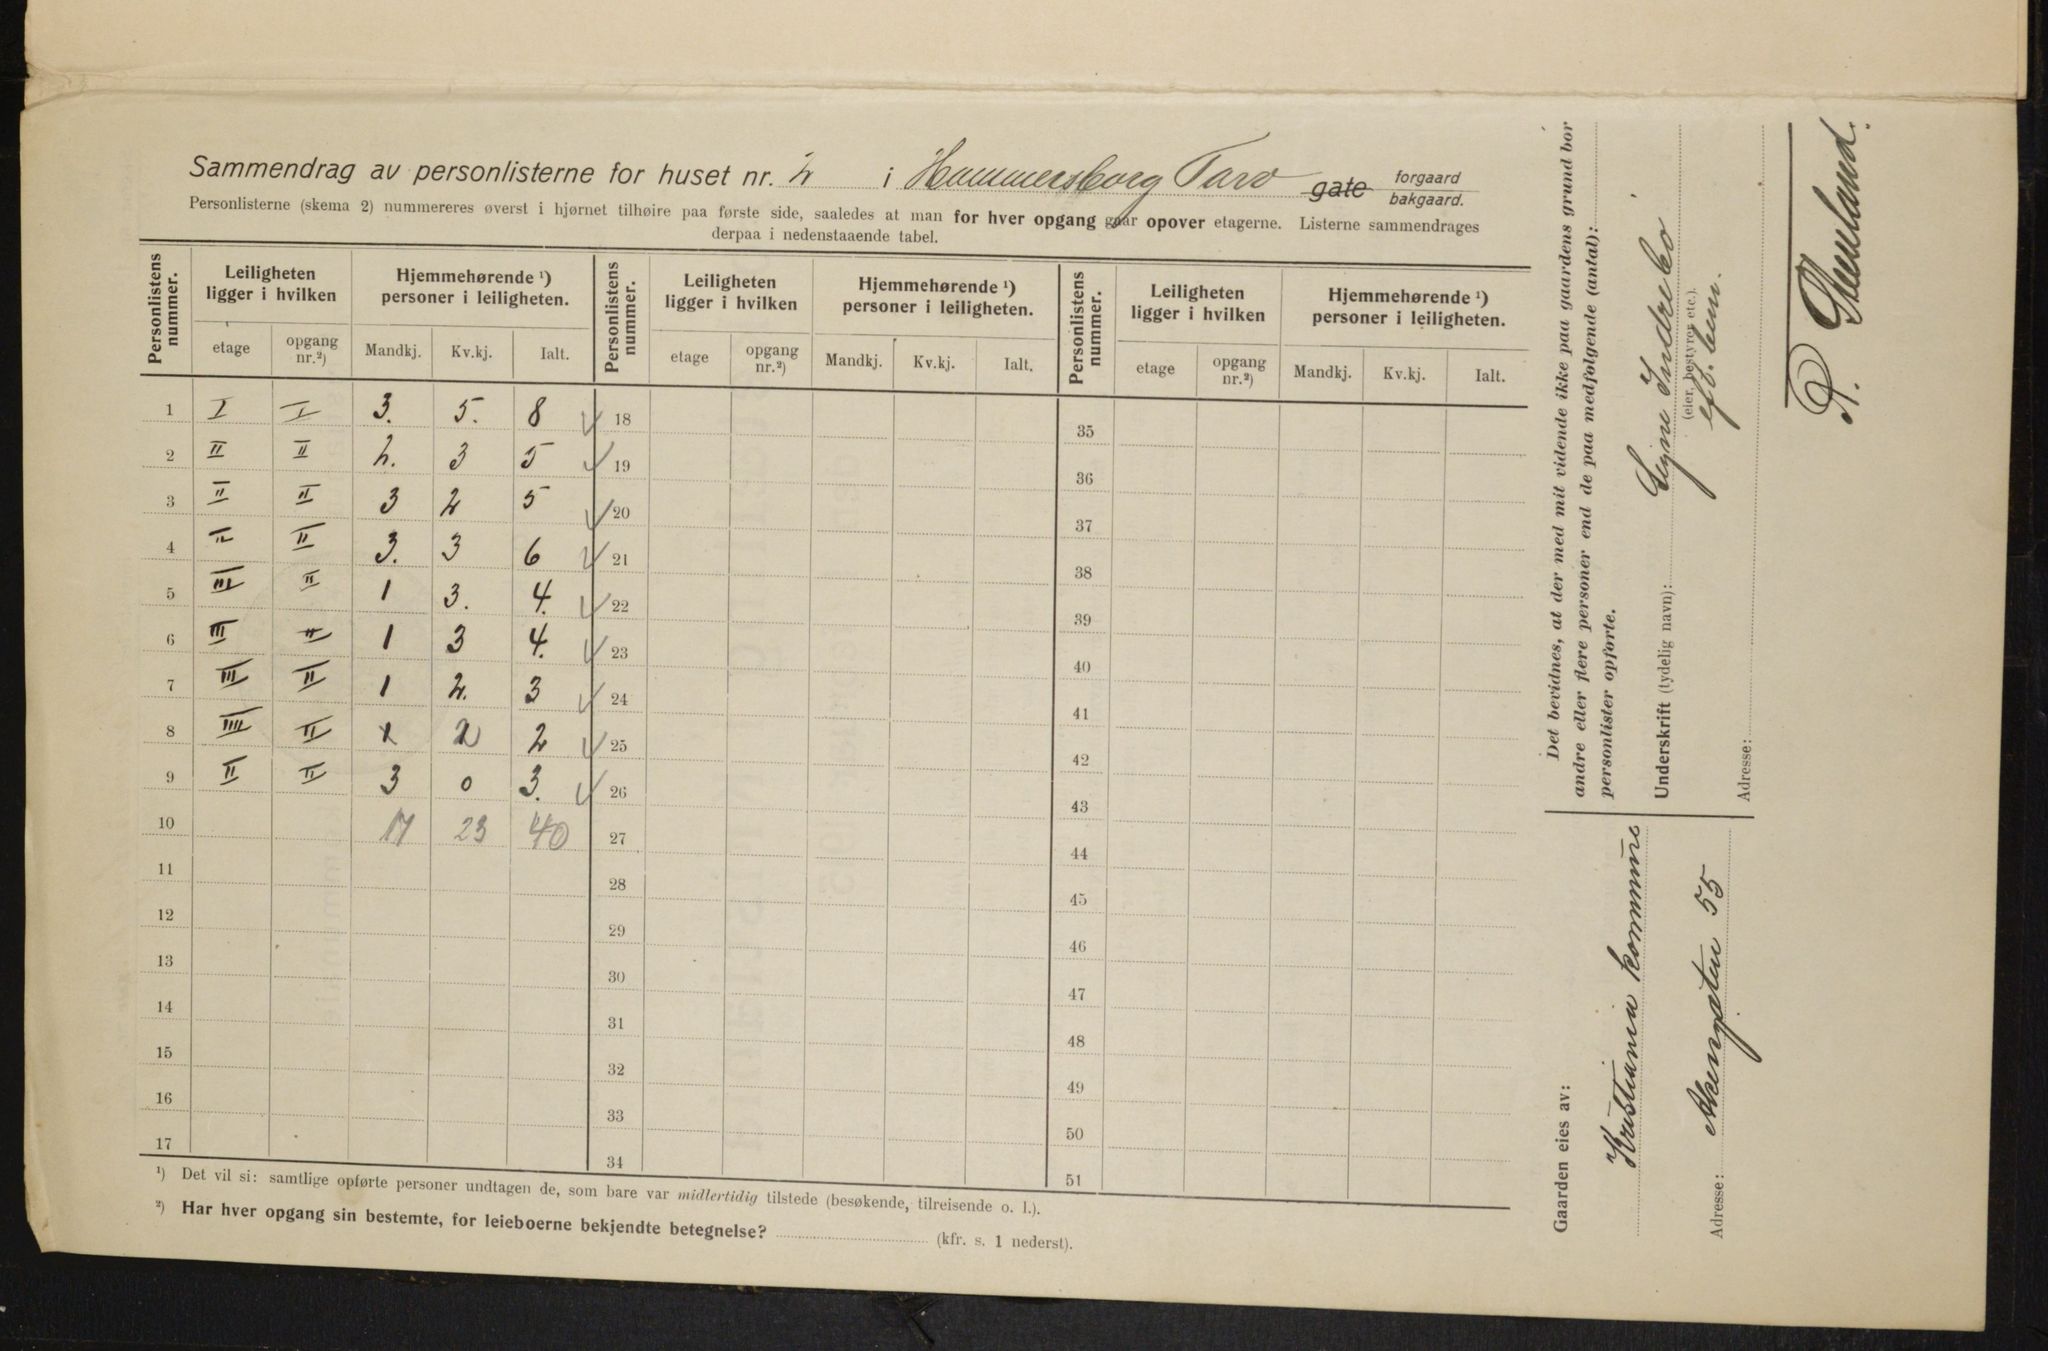 Sammendrag av personlisterne for huset nr. 2 i Hammersborg Torv gate forgaard bakgaard.
Personlisterne (skema 2) nummereres øverst i hjørnet tilhøire paa første side, saaledes at man for hver opgang gaar opover etagerne. Listerne sammendrages
derpaa i nedenstaaende tabel.
Personlistens nummer. Leiligheten ligger i hvilken Hjemmehørende ¹) personer i leiligheten. Personlistens nummer. Leiligheten ligger i hvilken Hjemmehørende ¹) personer i leiligheten. Personlistens nummer. Leiligheten ligger i hvilken Hjemmehørende ¹) personer i leiligheten.
etage opgang nr.²) Mandkj. Kv.kj. Ialt. etage opgang nr.²) Mandkj. Kv.kj. Ialt. etage opgang nr.²) Mandkj. Kv.kj. Ialt.
1 I I 3. 5. 8 18 35
2 II II 2. 3 5 19 36
3 II II 3 2 5 20 37
4 II II 3. 3 6 21 38
5 III II 1 3. 4. 22 39
6 III II 1 3 4. 23 40
7 III II 1 2. 3 24 41
8 IIII II x 2 2 25 42
9 II II 3 0 3. 26 43
10 17 23 40 27 44
11 28 45
12 29 46
13 30 47
14 31 48
15 32 49
16 33 50
17 34 51
¹) Det vil si: samtlige opførte personer undtagen de, som bare var midlertidig tilstede (besøkende, tilreisende o. l.).
²) Har hver opgang sin bestemte, for leieboerne bekjendte betegnelse? (kfr. s. 1 nederst).
Det bevidnes, at der med mit vidende ikke paa gaardens grund bor
andre eller flere personer end de paa medfølgende (antal):
personlister opførte.
Underskrift (tydelig navn): Signe Indrebø
(eier, bestyrer etc.).
eft. bem.
Adresse:
Gaarden eies av:
Kristiania kommune
Adresse: Akersgaten 55